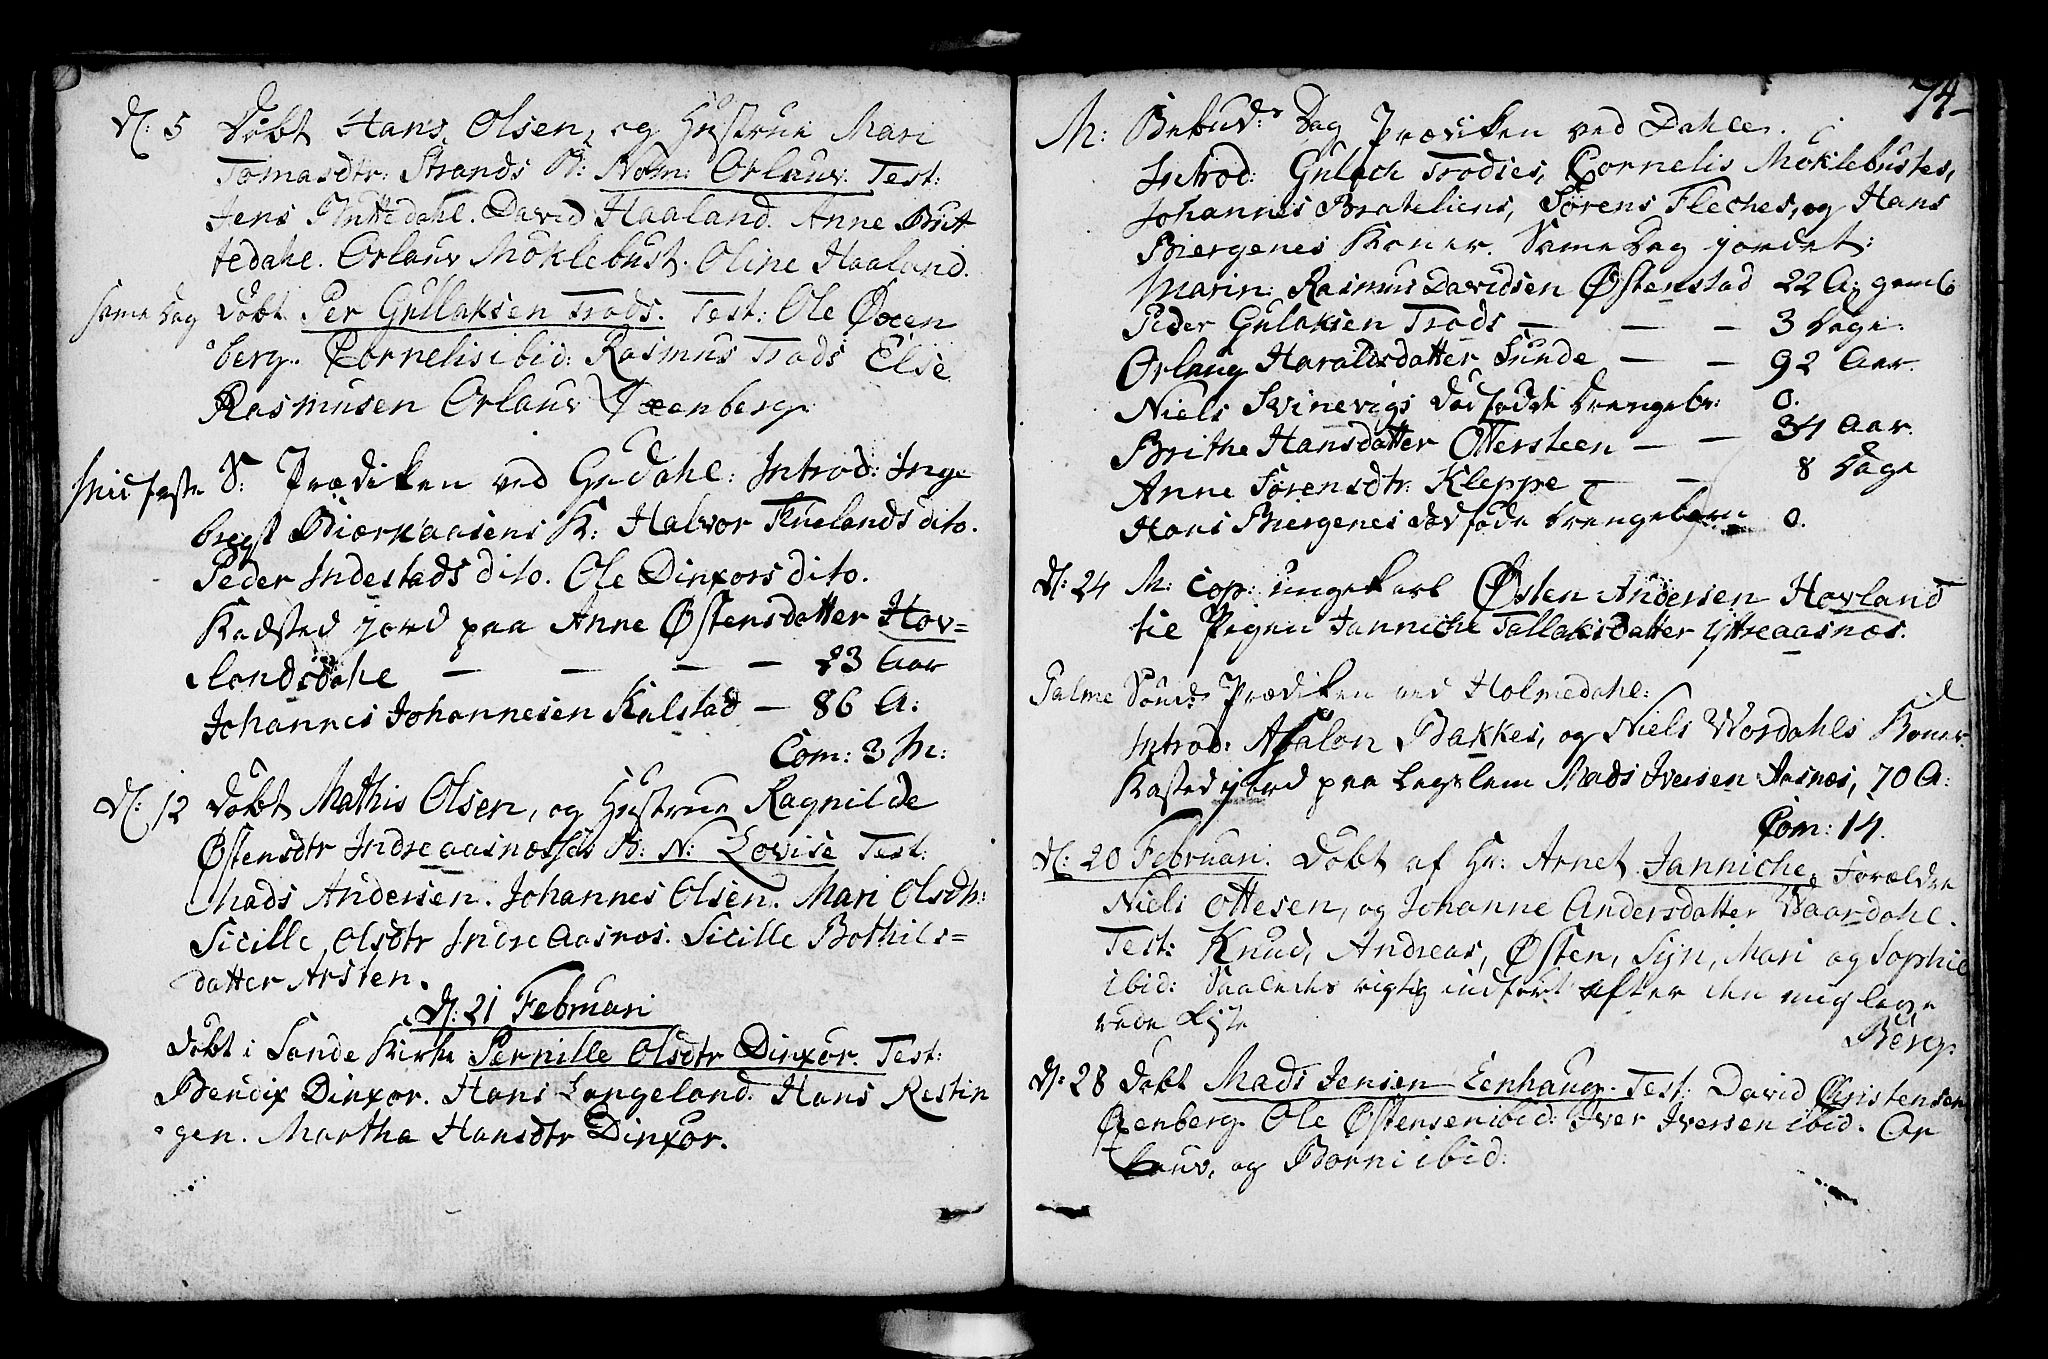 D: 5 Döbt Hans Olsen, og Hustrue Mari
Tomasdtr: Strands B: Nom: Orlauv. Test:
Jens Buttedahl. David Haaland. Anne Butt
tedahl. Orlauv Möklebust. Oline Haaland.
Same Dag Döbt Per Gullaksen Trods. Test: Ole Øxen
berg. Cornelis ibid: Rasmus Trods Else
Rasmusen Orlauv Øxenberg.
Mid faste S: Prædiken ved Gr: Dahl: Introd: Inge
bregt Biørkaasens K: Halvor Fluelands dito.
Peder Indestads dito. Ole Dinxors dito.
Kasted jord paa Anne Østensdatter Hov=
landsdahl — — — — 23 Aar
Johannes Johannesen Kalstad — 86 A:
Com: 3 M:
D: 12 Döbt Mathis Olsen, og Hustrue Ragnilde
Østensdtr Indre aasnæsses B: N: Lovise Test:
Mads Andersen. Johannes Olsen. Mari Olsdtr:
Sicille Olsdtr Indre Aasnæs. Sicille Bothils=
datter Arsten.
D: 21 Februari
Döbt i Sande Kirke Pernille Olsdtr Dinxor. Test:
Bendix Dinxor. Hans Langeland. Hans Restin
gen. Martha Hansdtr Dinxor.
74
M: Bebud: Dag Prædiken ved Dahle.
Introd: Gulack Trodses, Cornelis Möklebustes,
Johannes Brateliens, Sörens Fleches, og Hans
Biergenes Koner. Same Dag jordet:
Marin: Rasmus Davidsen Østenstad 22 A: gaml
Peder Gulaksen Trods — — — 3 Dage:
Orlaug Haraldsdatter Sunde — — 92 Aar.
Niels Svinevigs död födde Drengebr: 0.
Brithe Hansdatter Ottersteen — — 34 Aar.
Anne Sörensdtr: Kleppe — — 8 Dage
Hans Biergenes dödföde Drengebarn 0.
D: 24 M: Cop: ungekarl Østen Andersen Hovland
til Pigen Janniche Tallaksdatter Yttreaasnæs.
Palme Sönd: Prædiken ved Holmedahl:
Introd: Absalon Bakkes, og Niels Wordahls Koner.
Kasted jord paa Legslem Mads Iversen Aasnæs, 70 A:
Com: 14.
D: 20 Februari. Döbt af Hr: Arnet Janniche, Forældre
Niels Ottesen, og Johanne Andersdatter Waardahl.
Test: Knud, Andreas, Østen, Syn, Mari og Sophie
ibid: Saaledes rigtig indfört efter den mig leve
rede Liste
Berg.
D: 28 Döbt Mads Jensen Eenhaug. Test: David Christensen
Øxenberg. Ole Østensen ibid: Iver Iversen ibid. Or
lauv, og Borni ibid: